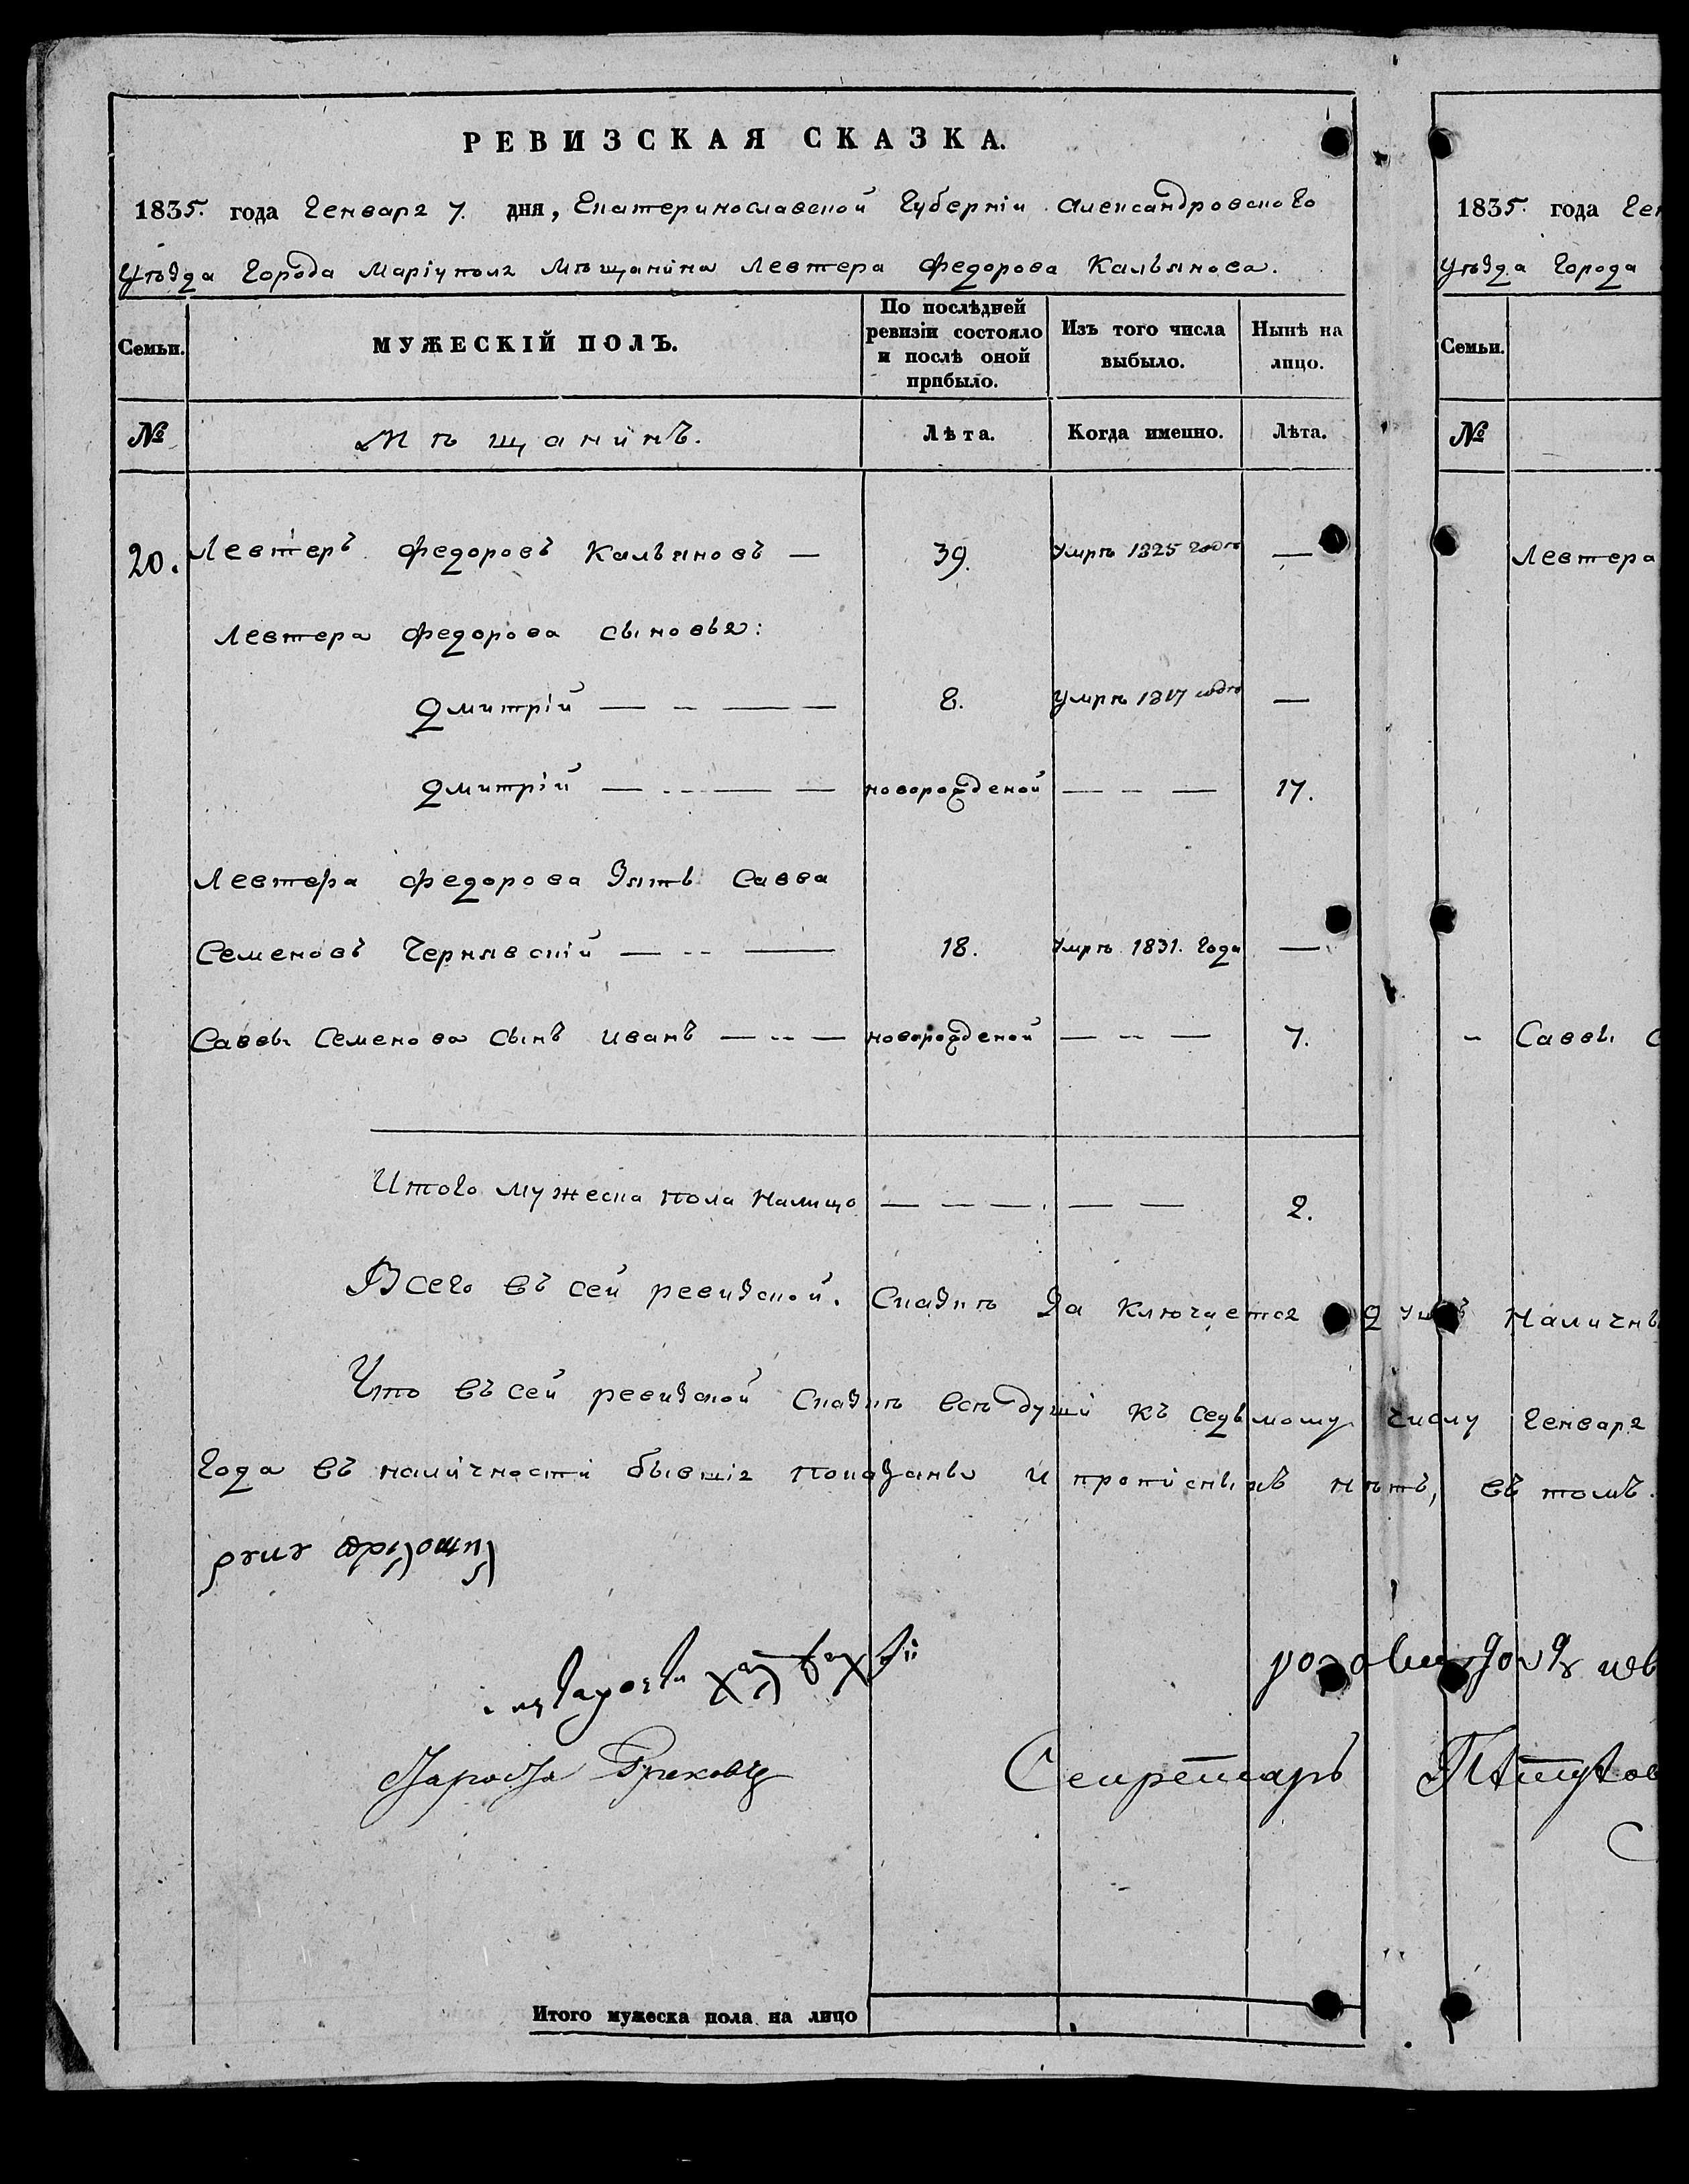 РЕВИЗСКАЯ СКАЗКА.
1835. года Генваря 7. дня, Екатеринославской Губерніи Александровского
Уѣзда Города Маріуполя Мѣщанина Левтера Федорова Кальянова.
Семьи.
МУЖЕСКІЙ ПОЛЪ.
По послѣдней ревизіи состояло и послѣ оной прибыло.
Изъ того числа выбыло.
Нынѣ на лицо.
№
Мѣщанинъ.
Лѣта.
Когда именно.
Лѣта.
20. Левтеръ Федоровъ Кальяновъ — 39. Умрѣ 1825 годѣ —
Левтера Федорова сыновья:
Дмитрій — - — — 8. Умрѣ 1817 годѣ —
Дмитрій — - - — — новорожденой — - — 17.
Левтера Федорова Зять Савва
Семеновъ Чернявскій — - - — 18. Умрѣ 1831. Года —
Саввы Семенова Сынъ Иванъ — - - — новорожденой — - - — 7.
Итого мужеска пола налицо — — — — — 2.
Всего въ сей ревизской. Сказкѣ За Ключается Наличны
Что въ сей ревизской Сказкѣ всѣ души къ седьмому числу Генваря
Года въ наличности бывшія показаны и прописныхъ нѣтъ, въ томъ.
Староста Секретарь
Итого мужеска пола на лицо
1835. года Ген
Уѣзда Города
Семьи.
№
Левтера
- Саввы С